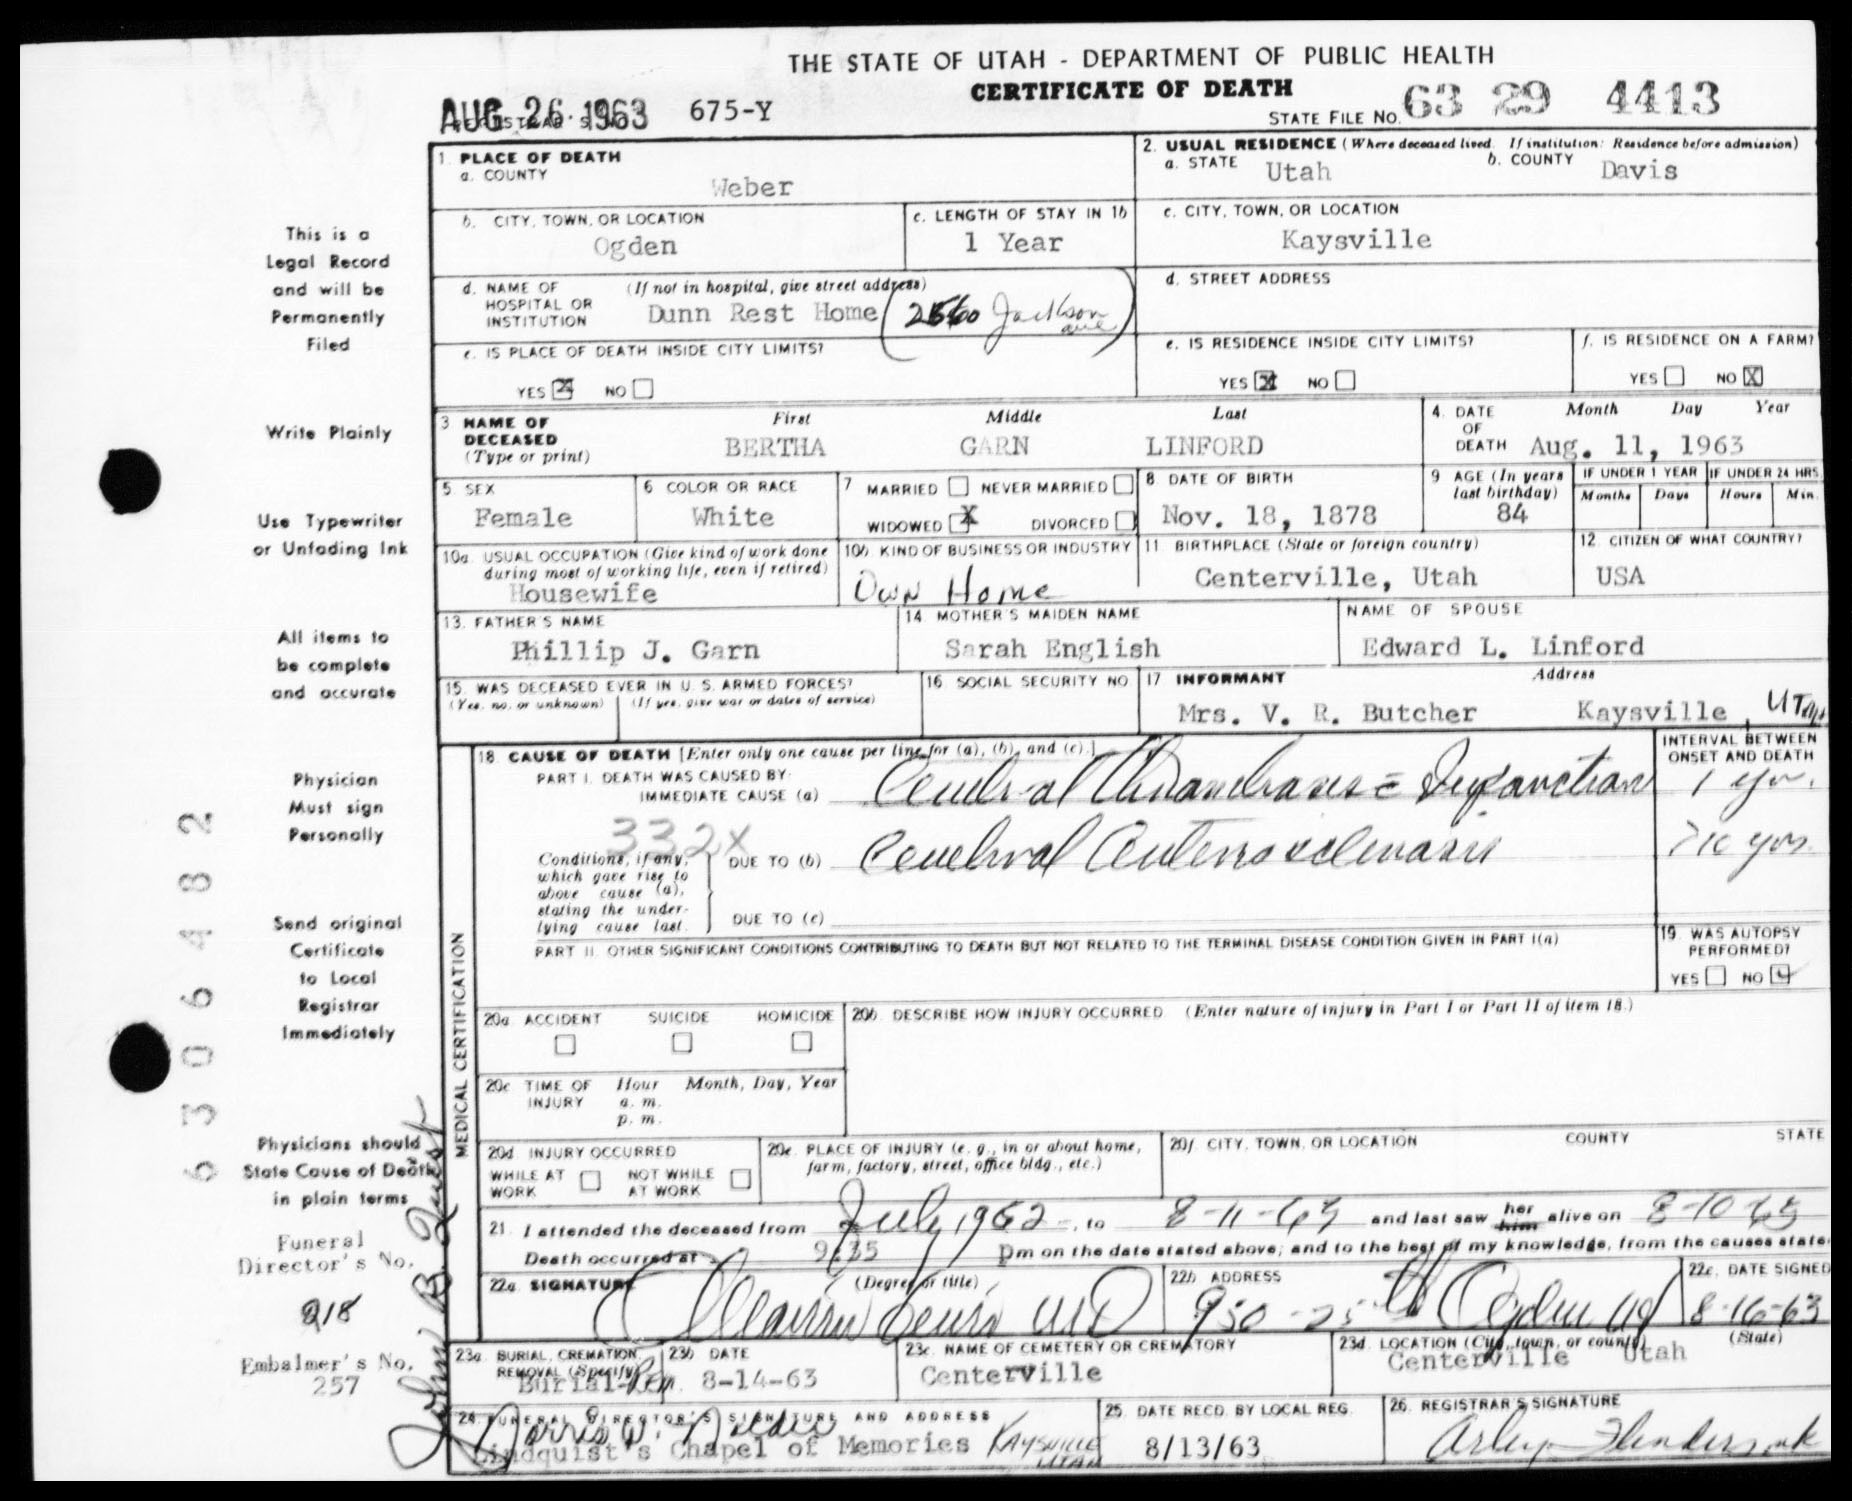 THE STATE OF UTAH - DEPARTMENT OF PUBLIC HEALTH
CERTIFICATE OF DEATH
AUG 26 1963 675-Y
STATE FILE NO. 63 29 4413
1. PLACE OF DEATH
a. COUNTY
Weber
2. USUAL RESIDENCE (Where deceased lived. If institution: Residence before admission)
a. STATE Utah b. COUNTY Davis
b. CITY, TOWN, OR LOCATION
Ogden
c. LENGTH OF STAY IN 1b
1 Year
c. CITY, TOWN, OR LOCATION
Kaysville
d. NAME OF HOSPITAL OR INSTITUTION (If not in hospital, give street address)
Dunn Rest Home (2560 Jackson ave)
d. STREET ADDRESS
e. IS PLACE OF DEATH INSIDE CITY LIMITS?
YES X NO
e. IS RESIDENCE INSIDE CITY LIMITS?
YES X NO
f. IS RESIDENCE ON A FARM?
YES NO X
3 NAME OF DECEASED (Type or print)
First Middle Last
BERTHA GARN LINFORD
4. DATE OF DEATH Month Day Year
Aug. 11, 1963
5 SEX
Female
6 COLOR OR RACE
White
7 MARRIED NEVER MARRIED
WIDOWED X DIVORCED
8 DATE OF BIRTH
Nov. 18, 1878
9 AGE (In years last birthday)
84
IF UNDER 1 YEAR IF UNDER 24 HRS.
Months Days Hours Min.
10a. USUAL OCCUPATION (Give kind of work done during most of working life, even if retired)
Housewife
10b. KIND OF BUSINESS OR INDUSTRY
Own Home
11 BIRTHPLACE (State or foreign country)
Centerville, Utah
12. CITIZEN OF WHAT COUNTRY?
USA
13. FATHER'S NAME
Phillip J. Garn
14 MOTHER'S MAIDEN NAME
Sarah English
NAME OF SPOUSE
Edward L. Linford
15. WAS DECEASED EVER IN U. S. ARMED FORCES?
(Yes, no, or unknown) (If yes, give war or dates of service)
16. SOCIAL SECURITY NO.
17 INFORMANT Address
Mrs. V. R. Butcher Kaysville, Utah
18. CAUSE OF DEATH [Enter only one cause per line for (a), (b), and (c).]
INTERVAL BETWEEN ONSET AND DEATH
PART I. DEATH WAS CAUSED BY:
IMMEDIATE CAUSE (a) Cerebral Thrombosis Infarction 1 yr.
332X
Conditions, if any, which gave rise to above cause (a), stating the underlying cause last.
DUE TO (b) Cerebral Arteriosclerosis >10 yrs.
DUE TO (c)
PART II. OTHER SIGNIFICANT CONDITIONS CONTRIBUTING TO DEATH BUT NOT RELATED TO THE TERMINAL DISEASE CONDITION GIVEN IN PART I(a)
19. WAS AUTOPSY PERFORMED?
YES NO
MEDICAL CERTIFICATION
20a. ACCIDENT SUICIDE HOMICIDE
20b. DESCRIBE HOW INJURY OCCURRED (Enter nature of injury in Part I or Part II of item 18.)
20c TIME OF INJURY Hour Month, Day, Year
a. m.
p. m.
20d. INJURY OCCURRED
WHILE AT WORK NOT WHILE AT WORK
20e. PLACE OF INJURY (e. g., in or about home, farm, factory, street, office bldg., etc.)
20f. CITY, TOWN, OR LOCATION COUNTY STATE
21. I attended the deceased from July 1962, to 8-11-63 and last saw her him alive on 8-10-63
Death occurred at 9:35 pm on the date stated above; and to the best of my knowledge, from the causes state
22a. SIGNATURE (Degree or title)
MD
22b. ADDRESS
950 - 25th Ogden
22c. DATE SIGNED
8-16-63
23a. BURIAL, CREMATION, REMOVAL (Specify)
Burial-Rem.
23b DATE
8-14-63
23c. NAME OF CEMETERY OR CREMATORY
Centerville
23d. LOCATION (City, town, or county) (State)
Centerville Utah
24. FUNERAL DIRECTOR'S SIGNATURE AND ADDRESS
Lindquist's Chapel of Memories Kaysville Utah
25. DATE RECD. BY LOCAL REG.
8/13/63
26. REGISTRAR'S SIGNATURE
This is a
Legal Record
and will be
Permanently
Filed
Write Plainly
Use Typewriter
or Unfading Ink
All items to
be complete
and accurate
Physician
Must sign
Personally
Send original
Certificate
to Local
Registrar
Immediately
Physicians should
State Cause of Death
in plain terms
Funeral
Director's No.
218
Embalmer's No.
257
John B.
6 3 0 6 4 8 2